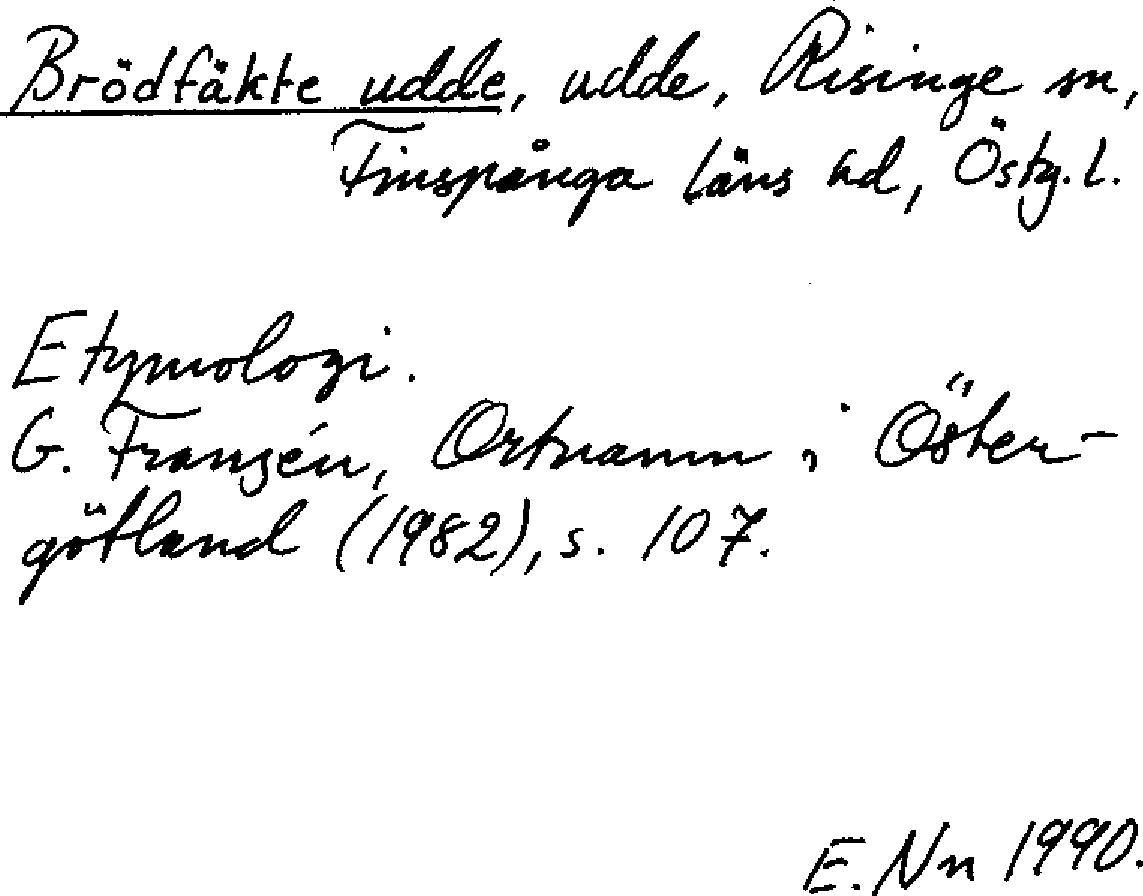 Brödfäkte udde, udde, Risinge sn,
Finspånga läns hd, Östg.l.
Etymologi.
G. Franzén, Ortnamn i Öster-
götland (1982), s. 107.
E. Nn 1990.